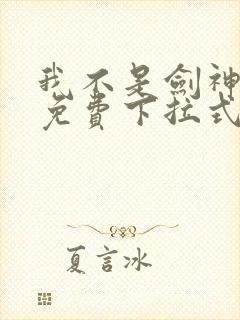 我不是劍神
免費下拉式
夏言冰